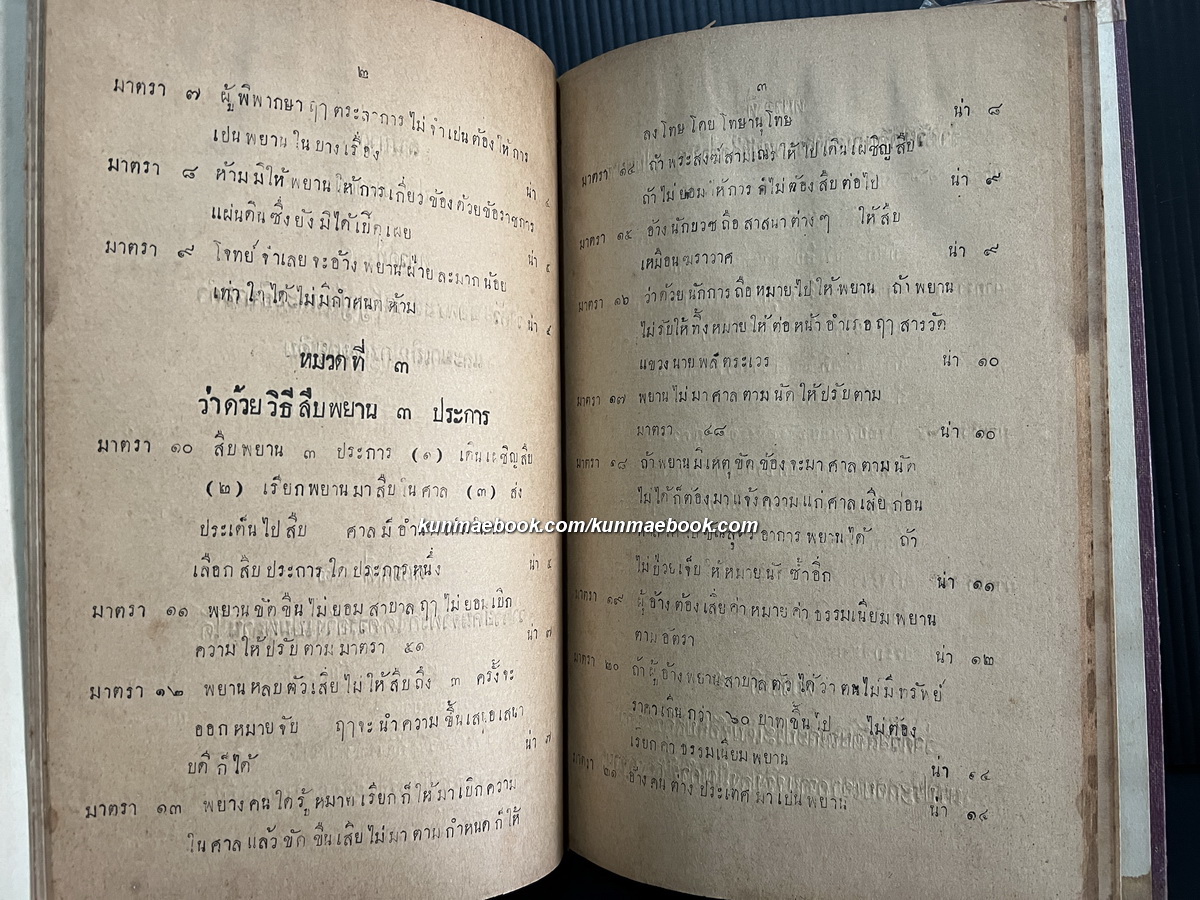 ๒
มาตรา ๗ ผู้พิพากษา ฤๅ ตระลาการ ไม่ จำเปน ต้อง ให้ การ
เปน พยาน ใน บาง เรื่อง น่า ๔
มาตรา ๘ ห้าม มิให้ พยาน ให้การ เกี่ยว ข้อง ด้วย ข้อราชการ
แผ่นดิน ซึ่ง ยัง มิได้ เปิด เผย น่า ๕
มาตรา ๙ โจทย์ จำเลย จะ อ้าง พยาน ฝ่าย ละ มาก น้อย
เท่า ใด ได้ ไม่ มี กำหนด ห้าม น่า ๕
หมวด ที่ ๓
ว่า ด้วย วิธี สืบ พยาน ๓ ประการ
มาตรา ๑๐ สืบ พยาน ๓ ประการ (๑) เดิน เผชิญ สืบ
(๒) เรียก พยาน มา สืบ ใน ศาล (๓) ส่ง
ประเด็น ไป สืบ ศาล มี
kunmaebook.com/kunmaebook.com
เลือก สืบ ประการ ใด ประการ หนึ่ง น่า
มาตรา ๑๑ พยาน ขัด ขืน ไม่ ยอม สาบาล ฤๅ ไม่ ยอม เบิก
ความ ให้ ปรับ ตาม มาตรา ๕๑ น่า ๗
มาตรา ๑๒ พยาน หลบ ตัว เสีย ไม่ ให้ สืบ ถึง ๓ ครั้ง จะ
ออก หมาย จับ ฤๅ จะ นำ ความ ขึ้น เสนอ เสนา
บดี ก็ ได้ น่า ๗
มาตรา ๑๓ พยาง คน ใด รู้ หมาย เรียก ก็ ให้ มา เบิก ความ
ใน ศาล แล้ว ขัด ขืน เสีย ไม่ มา ตาม กำหนด ก็ ให้
๓
ลง โทษ โดย โทษานุโทษ น่า ๘
มาตรา ๑๔ ถ้า พระสงฆ์ สามเณร ให้ ไป เดิน เผชิญ สืบ
ถ้า ไม่ ยอม ให้การ ก็ ไม่ ต้อง สืบ ต่อ ไป น่า ๙
มาตรา ๑๕ อ้าง นักบวช ถือ สาสนา ต่าง ๆ ให้ สืบ
เหมือน ฆราวาศ น่า ๙
มาตรา ๑๖ ว่า ด้วย นักการ ถือ หมาย ไป ให้ พยาน ถ้า พยาน
ไม่ รับ ให้ ทิ้ง หมาย ให้ ต่อ หน้า อำเภอ ฤๅ สารวัด
แขวง นาย พลตระเวร น่า ๑๐
มาตรา ๑๗ พยาน ไม่ มา ศาล ตาม นัด ให้ ปรับ ตาม
มาตรา ๔๘ น่า ๑๐
มาตรา ๑๘ ถ้า พยาน มี เหตุ ขัด ข้อง จะ มา ศาล ตาม นัด
ไม่ ได้ ก็ ต้อง มา แจ้ง ความ แก่ ศาล เสีย ก่อน
อาการ พยาน ได้ ถ้า
ไม่ ป่วย เจ็บ ให้ หมาย นัด ซ้ำ อีก น่า ๑๑
มาตรา ๑๙ ผู้ อ้าง ต้อง เสีย ค่า หมาย ค่า ธรรมเนียม พยาน
ตาม อัตรา น่า ๑๒
มาตรา ๒๐ ถ้า ผู้ อ้าง พยาน สาบาล ตัว ได้ ว่า ตน ไม่ มี ทรัพย์
ราคา เกิน กว่า ๖๐ บาท ขึ้น ไป ไม่ ต้อง
เรียก ค่า ธรรมเนียม พยาน น่า ๑๔
มาตรา ๒๑ อ้าง คน ต่าง ประเทศ มา เปน พยาน น่า ๑๔